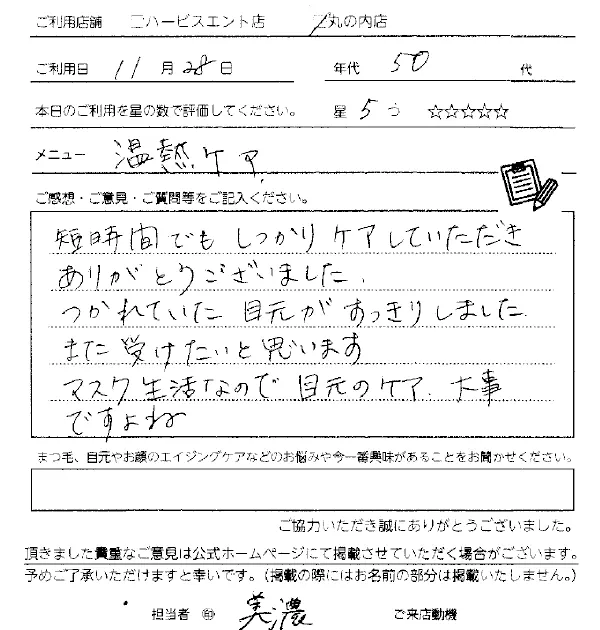 ご利用店舗 □ハービスエント店 ☑丸の内店
ご利用日 11月28日 年代 50 代
本日のご利用を星の数で評価してください。 星 5 つ ☆☆☆☆☆
メニュー 温熱ケア
ご感想・ご意見・ご質問等をご記入ください。
短時間でも しっかり ケアしていただき
ありがとうございました.
つかれていた 目元が すっきりしました.
また 受けたいと思います
マスク生活なので 目元のケア、大事
ですよね
まつ毛、目元やお顔のエイジングケアなどのお悩みや今一番興味があることをお聞かせください。
ご協力いただき誠にありがとうございました。
頂きました貴重なご意見は公式ホームページにて掲載させていただく場合がございます。
予めご了承いただけますと幸いです。(掲載の際にはお名前の部分は掲載いたしません。)
担当者 ㊞ 美濃 ご来店動機